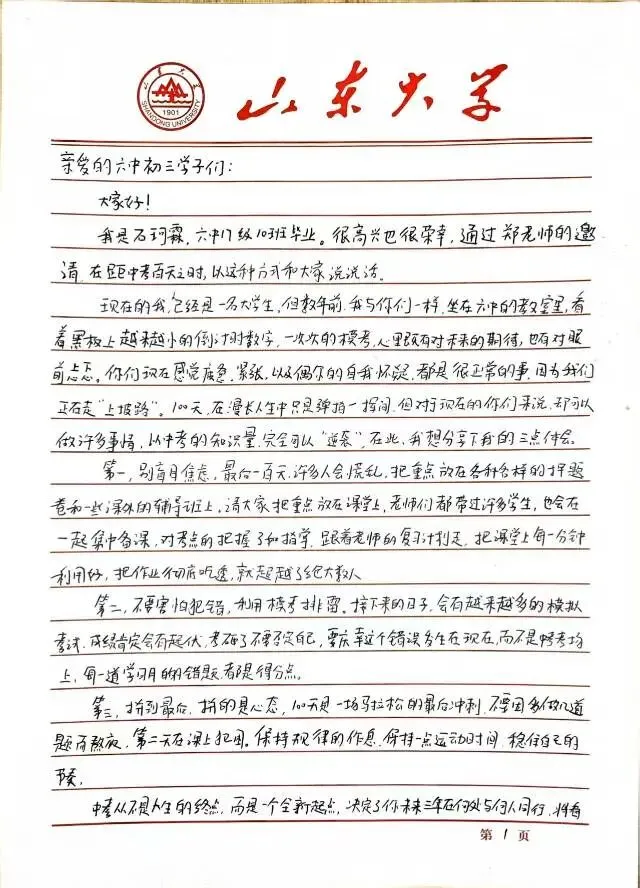 山东大学
SHANDONG UNIVERSITY
1901
亲爱的六中初三学子们：
大家好！
我是石珂霖，六中17级10班毕业。很高兴也很荣幸，通过郑老师的邀
请，在距中考百天之时，以这种方式和大家说说话。
现在的我，已经是一名大学生，但数年前，我与你们一样，坐在六中的教室里，看
着黑板上越来越小的倒计时数字，一次次的模考，心里既有对未来的期待，也有对眼
前忐忑。你们现在感觉疲惫、紧张，以及偶尔的自我怀疑，都是很正常的事，因为我们
正在走“上坡路”。100天，在漫长人生中只是弹指一挥间，但对于现在的你们来说，却可以
做许多事情，以中考的知识量，完全可以“逆袭”。在此，我想分享下我的三点体会。
第一，别盲目焦虑，最后一百天，许多人会慌乱，把重点放在各种各样的押题
卷和一些课外的辅导班上。请大家把重点放在课堂上，老师们都带过许多学生，也会在
一起集中备课，对考点的把握了如指掌，跟着老师的复习计划走，把课堂上每一分钟
利用好，把作业彻底吃透，就超越了绝大数人
第二，不要害怕犯错，利用模考排雷。接下来的日子，会有越来越多的模拟
考试，成绩肯定会有起伏，考砸了不要否定自己，要庆幸这个错误发生在现在，而不是中考场
上，每一道学习月的错题，都是得分点。
第三，拼到最后，拼的是心态，100天是一场马拉松的最后冲刺，不要因多做几道
题而熬夜，第二天在课上犯困。保持规律的作息，保持一点运动时间，稳住自己的
节奏。
中考从不是人生的终点，而是一个全新起点，决定了你未来三年在何处与何人同行，
第1页